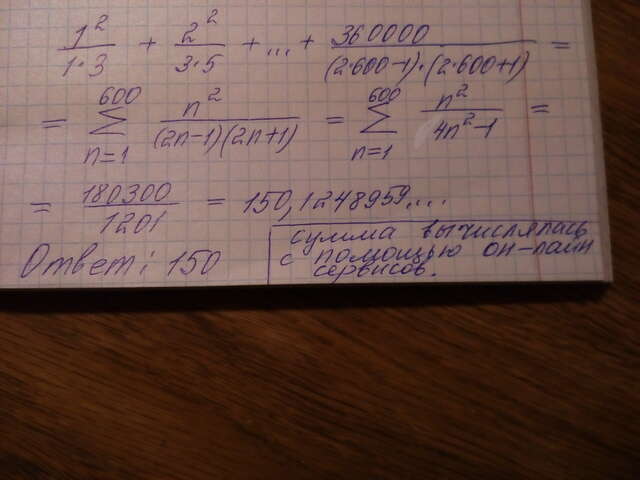 1²/1·3 + 2²/3·5 + ... + 360000/(2·600-1)·(2·600+1) =
= 600 Σ n=1 n²/(2n-1)(2n+1) = 600 Σ n=1 n²/4n²-1 =
= 180300/1201 = 150,1248959....
Ответ: 150
сумма вычислялась
с помощью он-лайн
сервисов.